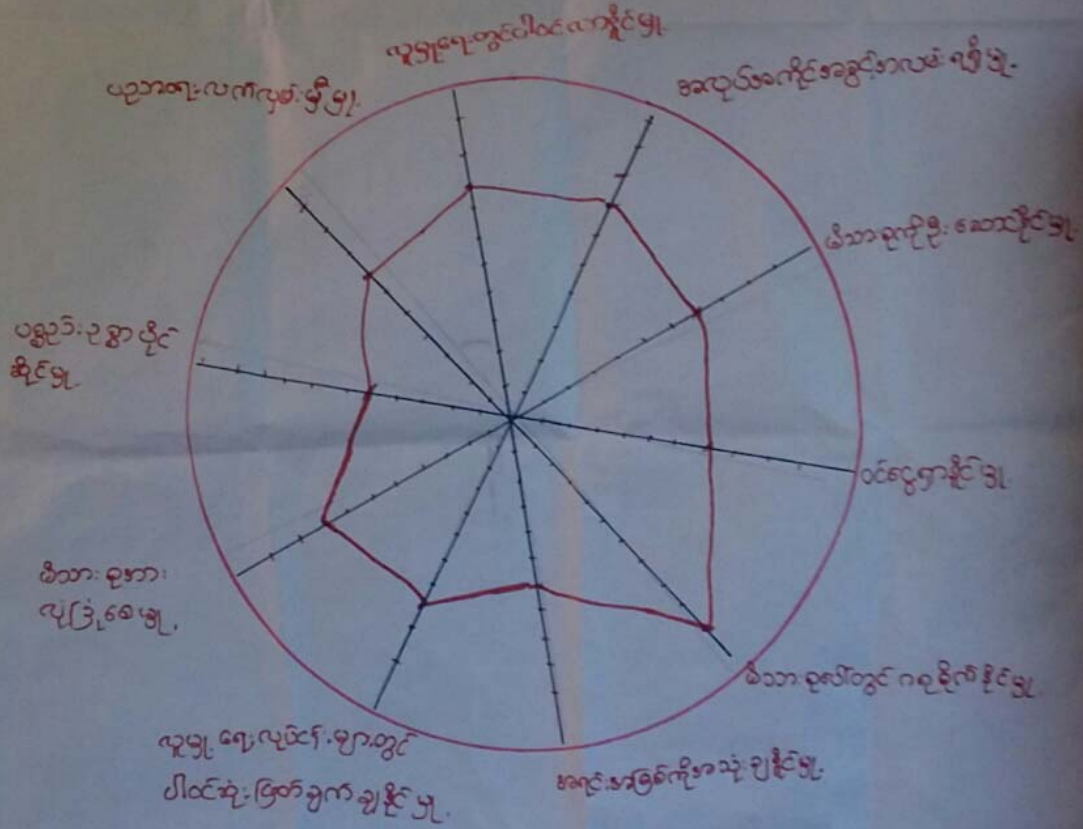 လူမှုရေးတွင်ပါဝင်လာနိုင်မှု.
အလုပ်အကိုင်အခွင့်အလမ်းရရှိမှု.
မိသားစုကိုဦးဆောင်နိုင်မှု.
ဝင်ငွေရှာနိုင်မှု.
မိသားစုပေါ်တွင်ဂရုစိုက်နိုင်မှု.
အရင်းအမြစ်ကိုအသုံးချနိုင်မှု.
လူမှုရေးလုပ်ငန်းများတွင်
ပါဝင်ဆုံးဖြတ်ချက်ချနိုင်မှု.
မိသားစုအား
လုံခြုံစေမှု.
ပစ္စည်းဥစ္စာပိုင်
ဆိုင်မှု.
ပညာရေးလက်လှမ်းမှီမှု.